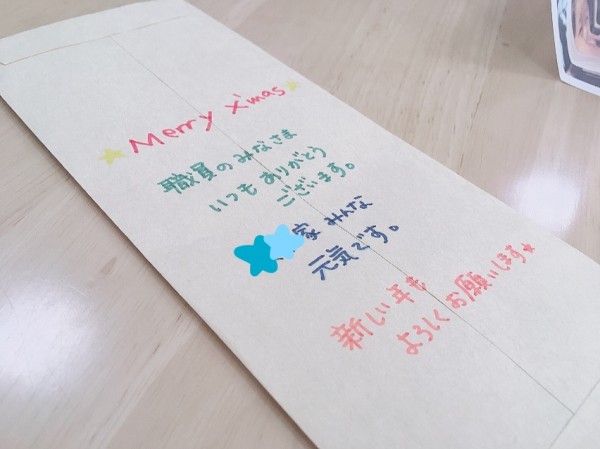 Merry X'mas
職員のみなさま
いつもありがとう
ございます。
家みんな
元気です。
新しい年も
よろしくお願いします☆